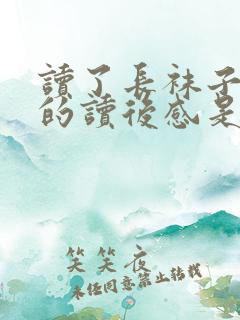 讀了長袜子
的讀後感是
笑笑夜
未任同意禁止转载